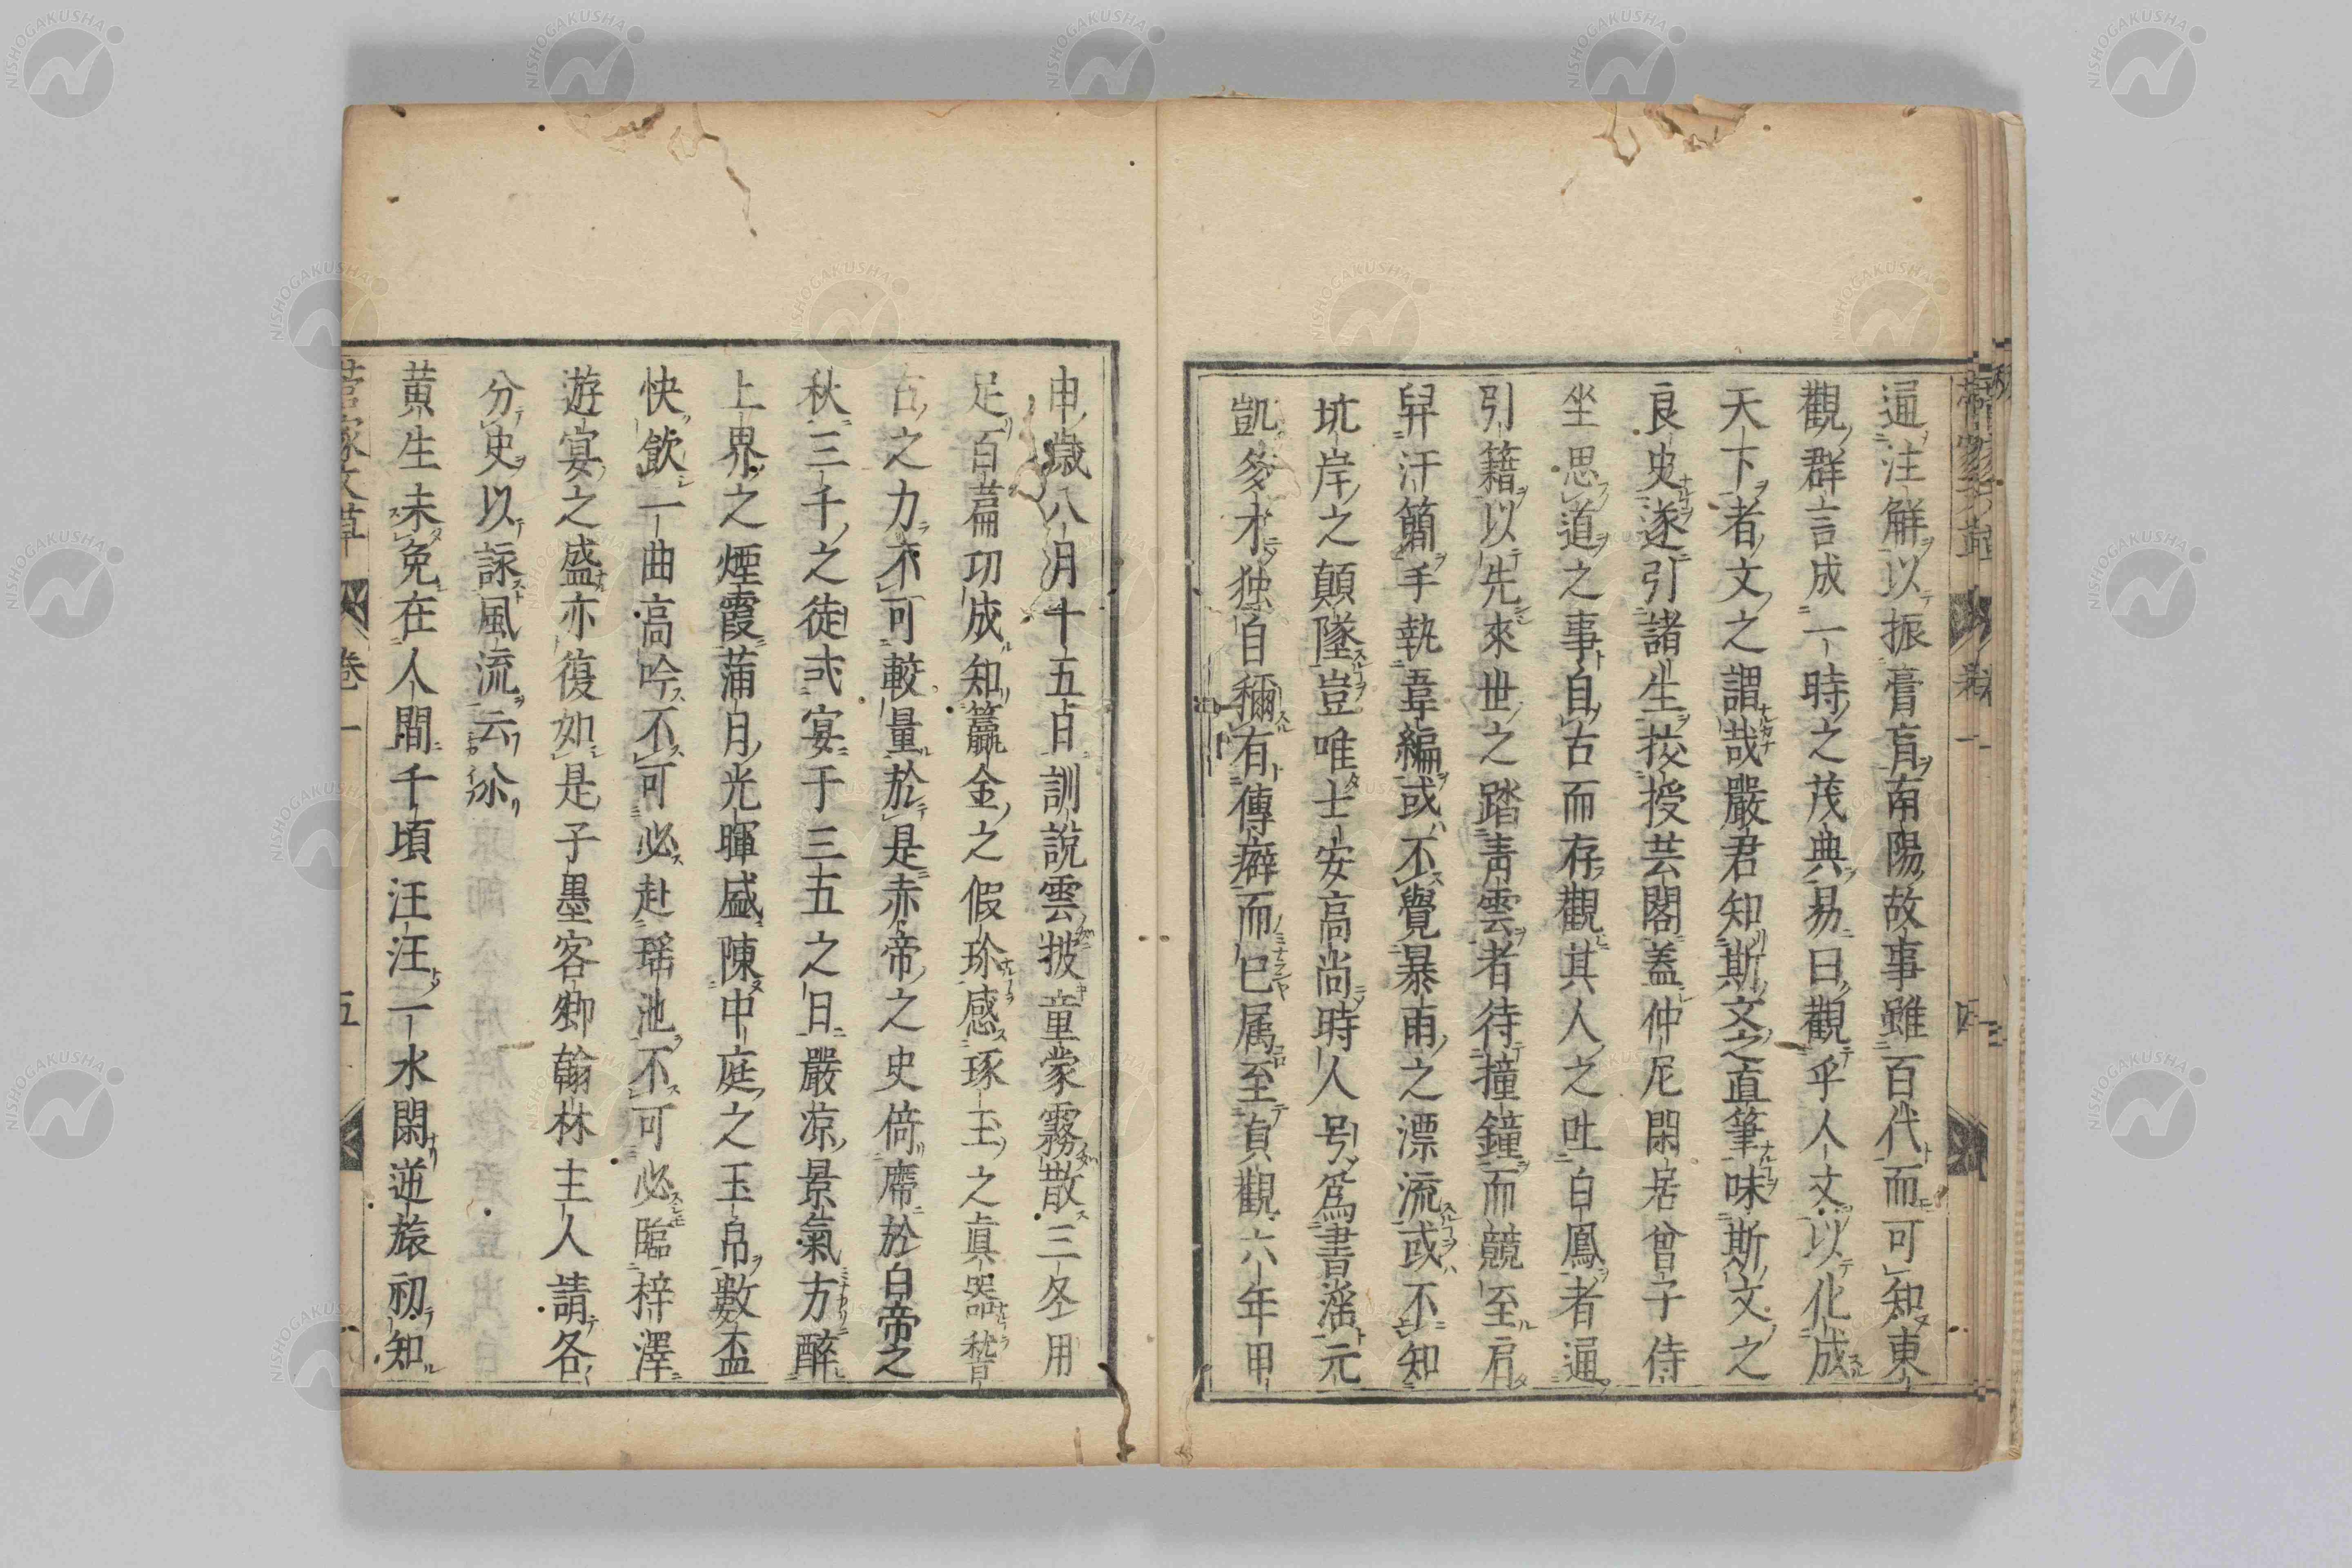 逼注解以振膏肓南陽故事雖百代而可知東
觀群言成一時之茂典易曰觀乎人文以化成
天下者文之謂哉嚴君知斯文之直筆味斯文之
良史遂引諸生挍授芸閣蓋仲尼閑居曾子侍
坐思道之事自古而存觀其人之吐白鳳者逼
引籍以先來世之踏青雲者待撞鐘而競至肩
舁汗簡手執韋編或不覺暴雨之漂流或不知
坑岸之顛墜豈唯士安高尚時人号爲書滛元
凱多才独自稱有傳癖而已属至貞觀六年甲
申歳八月十五日訓説雲披童蒙霧散三冬用
足百萹功成知籯金之假珎感琢玉之眞器
古之力不可較量於是赤帝之史倚席於白帝之
秋三千之徒式宴于三五之日嚴凉景氣方醉
上界之煙霞蒲月光暉盛陳中庭之玉帛數盃
快飲一曲高吟不可必赴瑶池不可必臨梓澤
遊宴之盛亦復如是子墨客卿翰林主人請各
分史以詠風流云尒
黄生未免在人間千頃汪汪一水閑逆旅初知
菅家文草 卷一 五
NISHOGAKUSHA